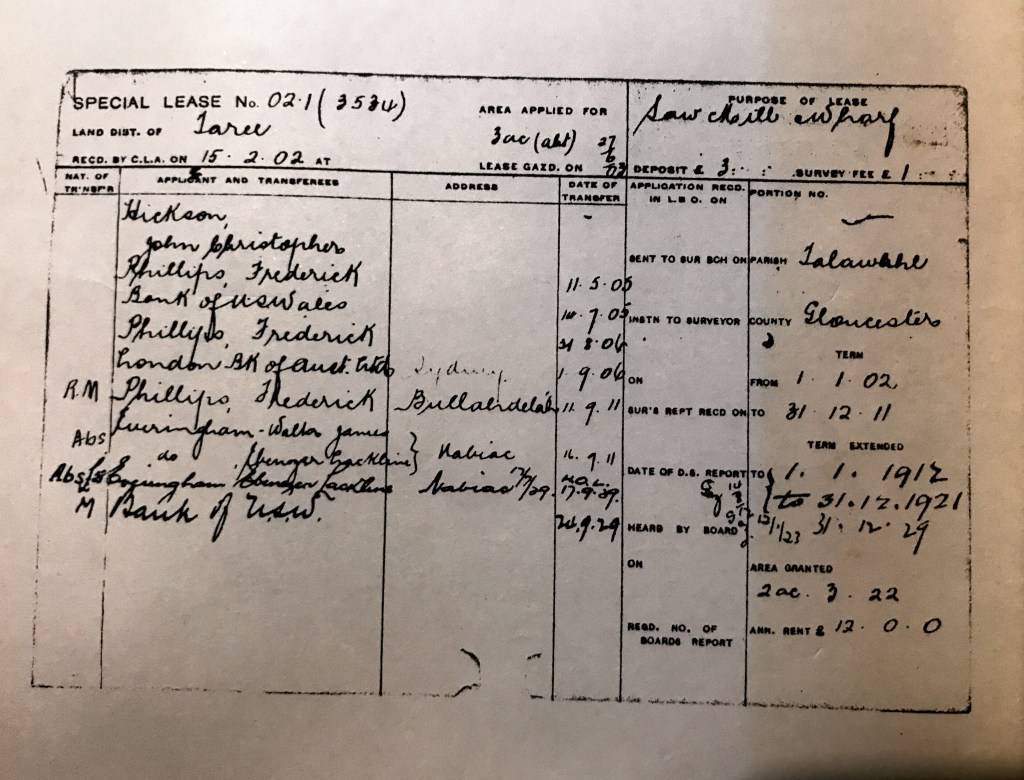 SPECIAL LEASE No. 02.1 (3534)
LAND DIST. OF Taree
RECD. BY C.L.A. ON 15.2.02 AT
AREA APPLIED FOR
3ac (abt)
LEASE GAZD. ON 27 6 02
PURPOSE OF LEASE
Saw Mill & Wharf
DEPOSIT £ 3 : : SURVEY FEE £ 1 : :
NAT. OF TR'NSF'R
APPLICANT AND TRANSFEREES
ADDRESS
DATE OF TRANSFER
Hickson, -
John Christopher
Phillips, Frederick 11.5.05
Bank of NSWales 14.7.05
Phillips, Frederick 31 8.06
London BK of Aust. Sydney 1.9.06
R.M Phillips, Frederick Bullahdelah 11.9.11
Everingham Walter James
Abs do Ebenezer Jackline } Nabiac 16.9.11
Abs Everingham Ebenezer Jackline Nabiac 17.9.29
M Bank of N.S.W. 24.9.29
APPLICATION RECD. IN L.B.O. ON
SENT TO SUR BCH ON
INSTN TO SURVEYOR
ON
SUR'S REPT RECD ON
DATE OF D.S. REPORT
HEARD BY BOARD
ON
REGD. NO. OF BOARDS REPORT
PORTION NO.
PARISH Talawahl
COUNTY Gloucester
TERM
FROM 1.1.02
TO 31.12.11
TERM EXTENDED
TO { 1.1.1912
to 31.12.1921
31.12.29
AREA GRANTED
2ac. 3. 22
ANN. RENT £ 12.0.0